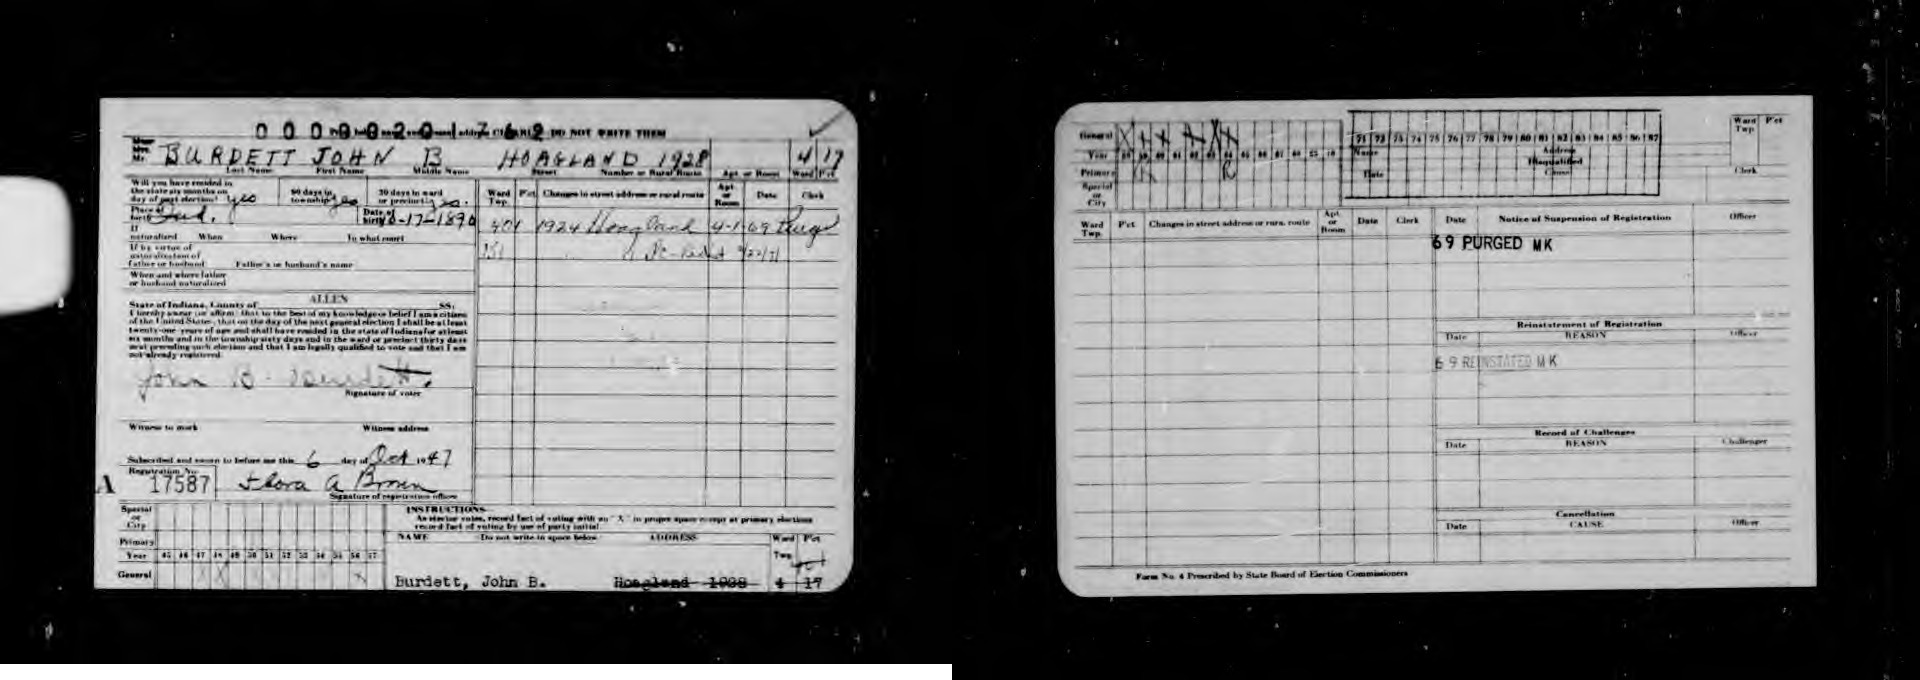 0000020176 2
DO NOT WRITE THEM
Mr. BURDETT JOHN B HOAGLAND 1928 4 17
Last Name First Name Middle Name Street Number or Rural Route Apt. or Room Ward Pct
Will you have resided in the state six months on day of next election? yes 60 days in township? yes 30 days in ward or precinct? yes.
Place of birth Ind. Date of birth 6-17-1890
If naturalized When Where In what court
If by virtue of naturalization of father or husband Father's or husband's name
When and where father or husband naturalized
State of Indiana, County of ALLEN SS:
I hereby swear (or affirm) that to the best of my knowledge or belief I am a citizen
of the United States; that on the day of the next general election I shall be at least
twenty-one years of age and shall have resided in the state of Indiana for at least
six months and in the township sixty days and in the ward or precinct thirty days
next preceding such election and that I am legally qualified to vote and that I am
not already registered.
John B. Burdett
Signature of voter
Witness to mark Witness address
Subscribed and sworn to before me this 6 day of Oct 1947
Registration No.
A 17587 Flora A Brown
Signature of registration officer
Ward Twp. P'ct Changes in street address or rural route Apt. or Room Date Clerk
401 1924 Hoagland 4-1-69
151
Special or City
Primary
Year 45 46 47 48 49 50 51 52 53 54 55 56 57
General X X X
INSTRUCTIONS—
As elector votes, record fact of voting with an "X" in proper space except at primary elections
record fact of voting by use of party initial.
NAME Do not write in space below ADDRESS Ward Twp. P'ct
Burdett, John B. Hoagland 1928 4 17
General
Year
Primary R
Special or City
71 72 73 74 75 76 77 78 79 80 81 82 83 84 85 86 87
Name Address
Disqualified
Date Cause
Ward Twp P'ct
Clerk
Ward Twp. P'ct Changes in street address or rural route Apt. or Room Date Clerk
Date Notice of Suspension of Registration Officer
69 PURGED MK
Reinstatement of Registration
Date REASON Officer
69 REINSTATED MK
Record of Challenges
Date REASON Challenger
Cancellation
Date CAUSE Officer
Form No. 4 Prescribed by State Board of Election Commissioners